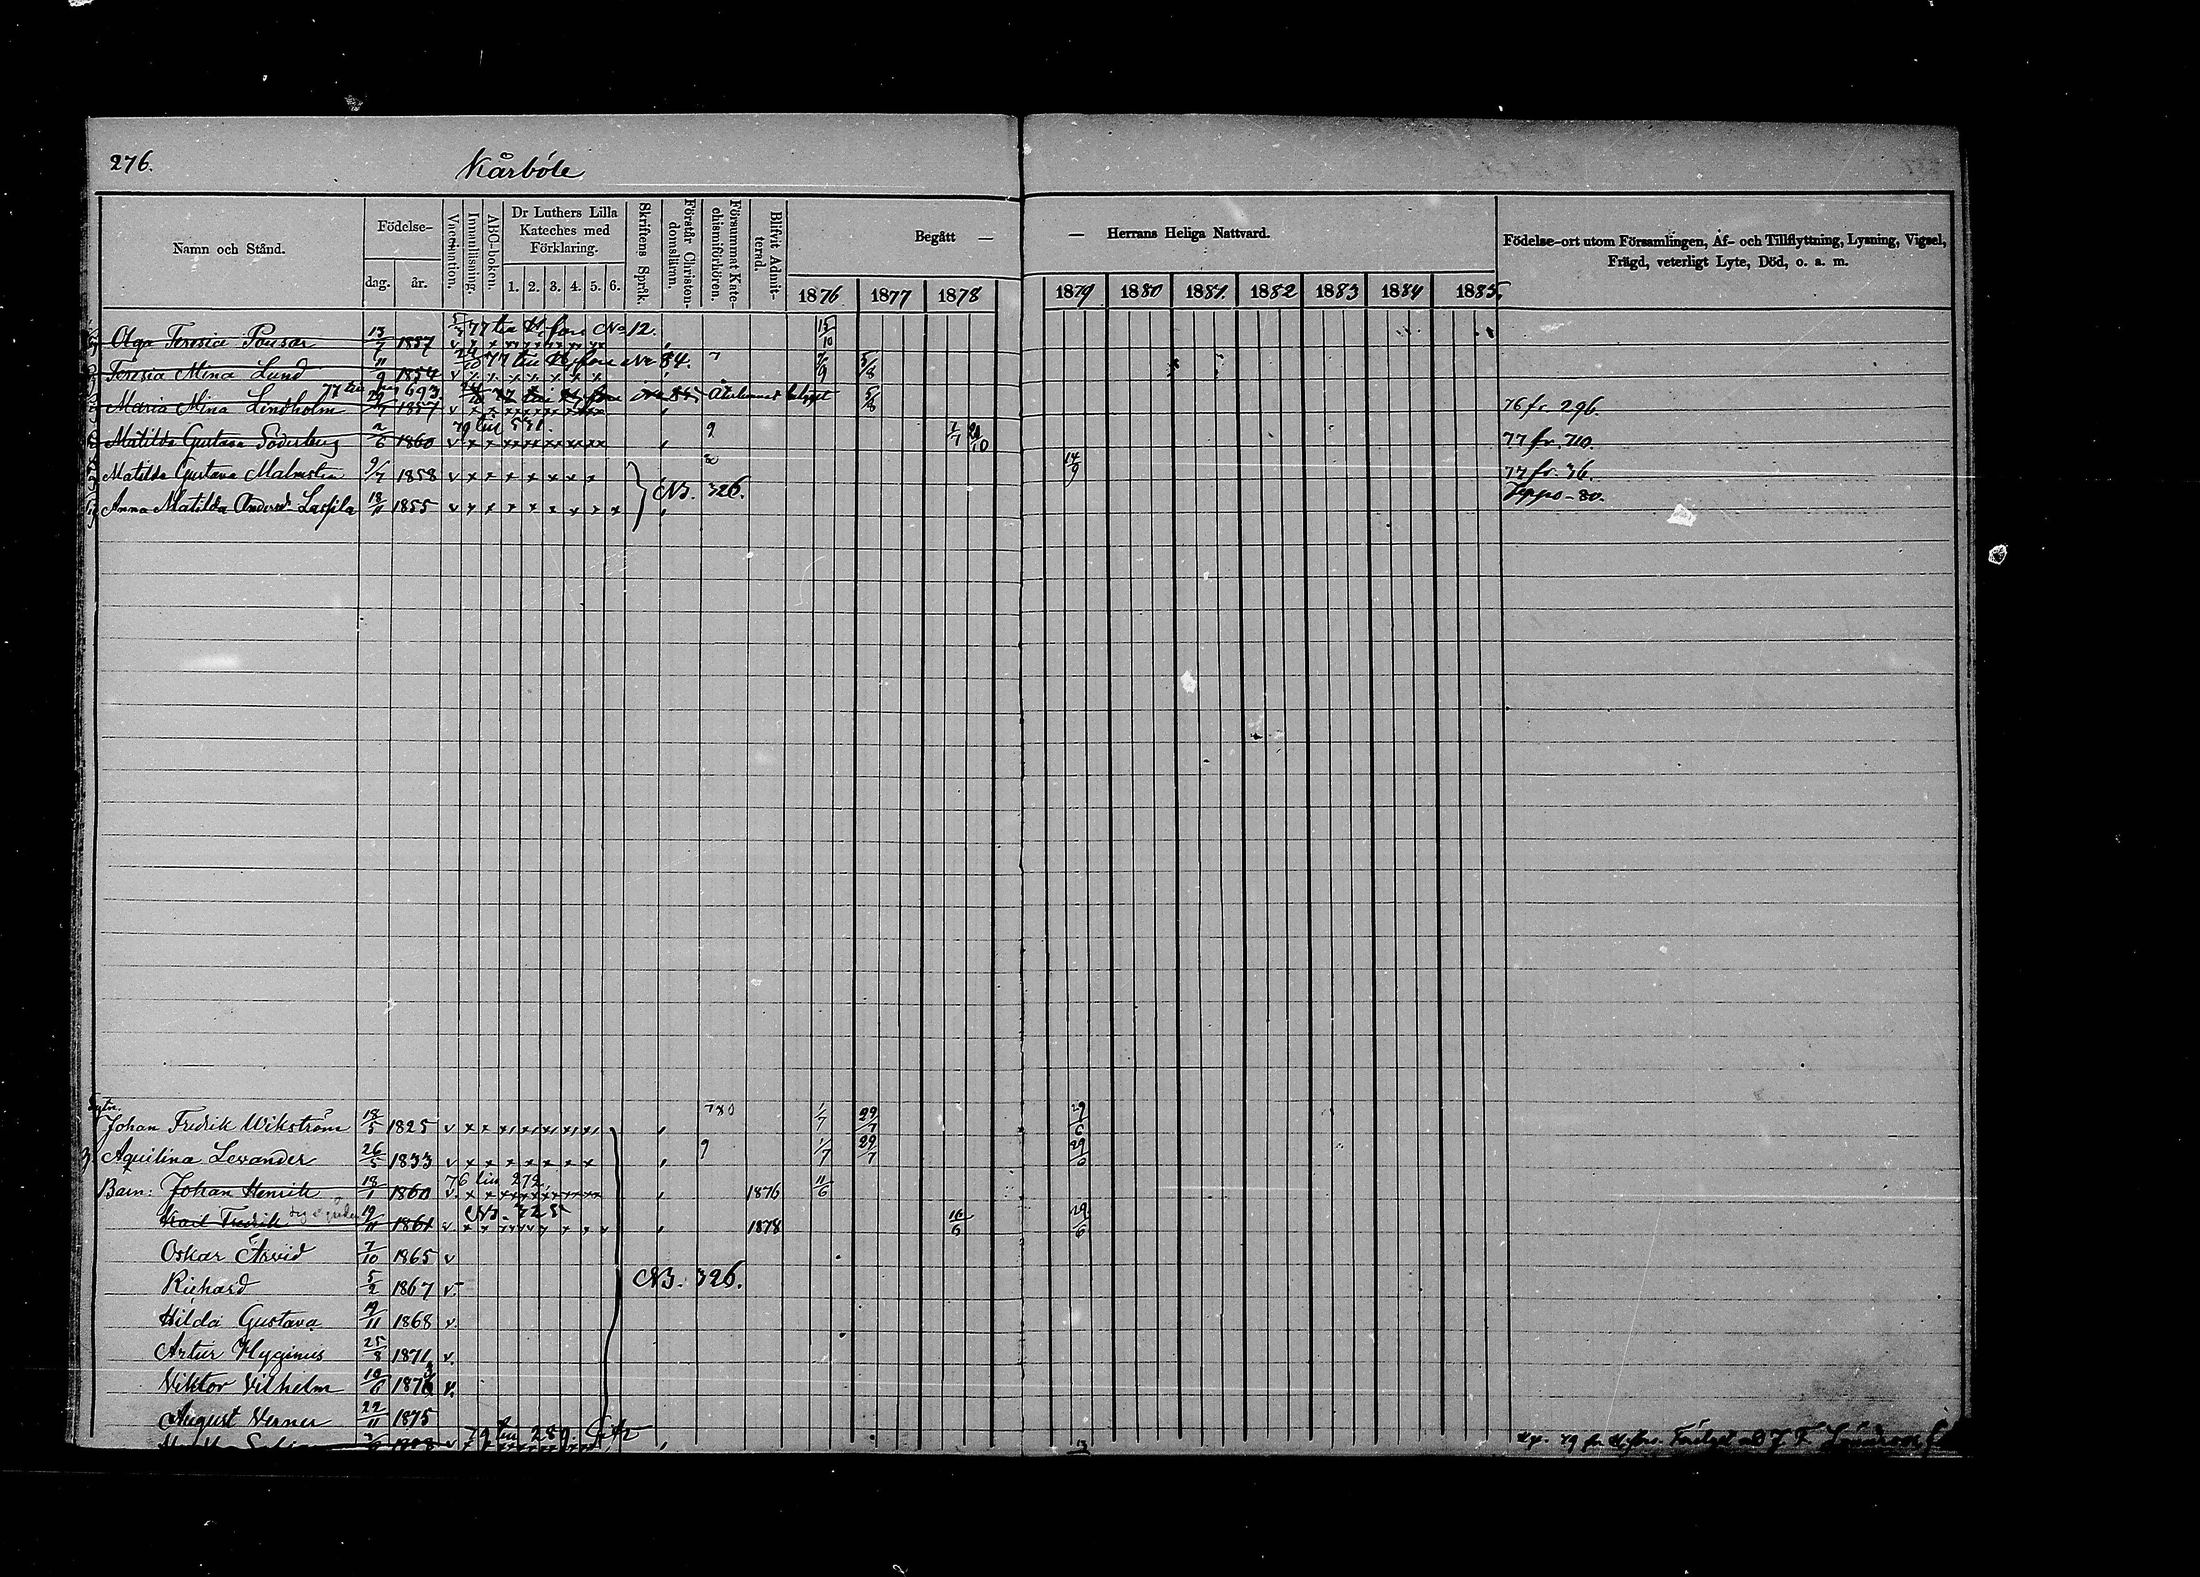 276.
Kårböle
Namn och Stånd.
Födelse-
dag. år.
Vaccination.
Innanläsning.
ABC-boken.
Dr Luthers Lilla Kateches med Förklaring.
1. 2. 3. 4. 5. 6.
Skriftens Språk.
Förstår Christendomsläran.
Försummat Katechismiförhören.
Blifvit Admitterad.
Begått — — Herrans Heliga Nattvard.
1876 1877 1878 1879 1880 1881 1882 1883 1884 1885
Födelse-ort utom Församlingen, Af- och Tillflyttning, Lysning, Vigsel, Frägd, veterligt Lyte, Död, o. a. m.
Olga Teresia Pousar 13/7 1857 77 No 12. 15/10
Teresia Mina Lund 11/9 1854 77 No 84. 7 5/8
77 693
Maria Mina Lindholm 1857 76 fr. 296.
Matilda Gustava Söderberg 2/6 1860 79 9 1/7 77 fr. 710.
Matilda Gustava Malmsten 9/7 1858 v x x x x x x x 14/9 77 fr. 36.
Anna Matilda 18/11 1855 v x x x x x x x x NB. 326. Jeppo - 80.
Johan Fredrik Wikström 18/5 1825 v 780 1/7 29/7 29/6
Aquilina Levander 26/5 1833 v x x x x x x x 9 1/7 29/7 29/6
Barn: Johan Henrik 18/1 1860 v. 76 272 1876 11/6
Karl Fredrik 19/11 1861 v. NB. 325 1878 16/6 29/6
Oskar Arvid 7/10 1865 v
Richard 5/2 1867 v. NB. 326.
Hilda Gustava 19/11 1868 v.
Artur Hyginus 25/8 1871 v.
Viktor Vilhelm 10/6 1873 v.
August Verner 22/11 1875
79 289.